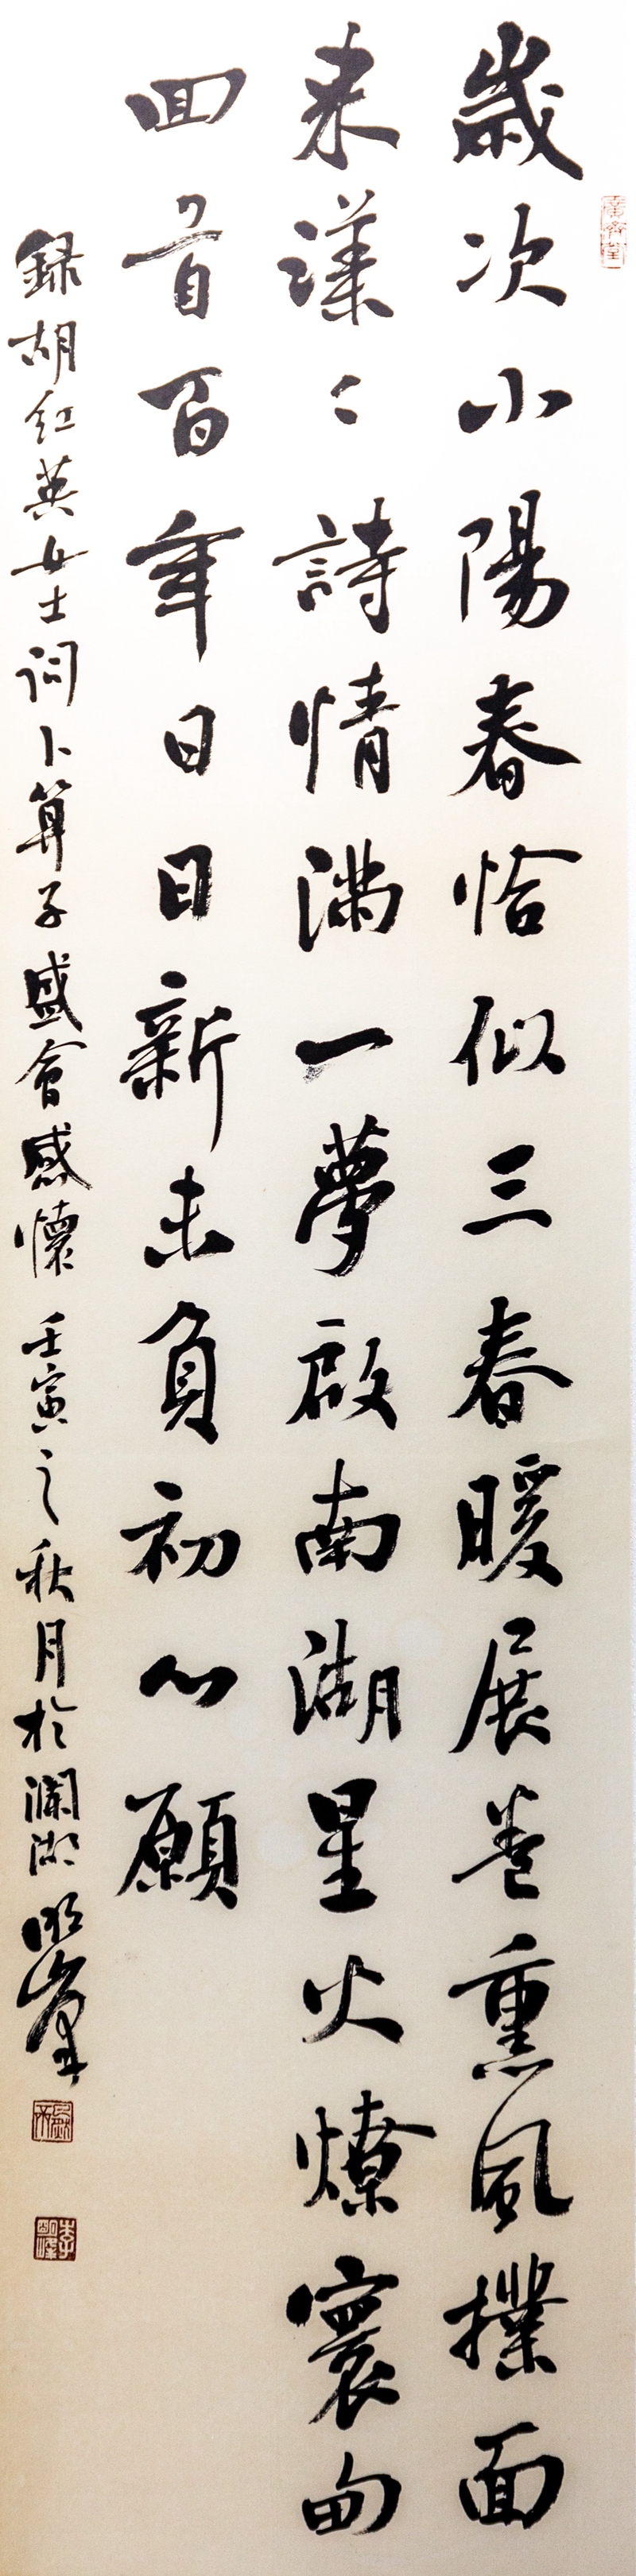 歲次小陽春恰似三春暖展卷熏風撲面
来漾〻詩情滿一夢啟南湖星火燎寰甸
回首百年日日新未負初心願
録胡紅英女士词卜算子盛會感懷 壬寅之秋月於澜湖 明峯
李明峰